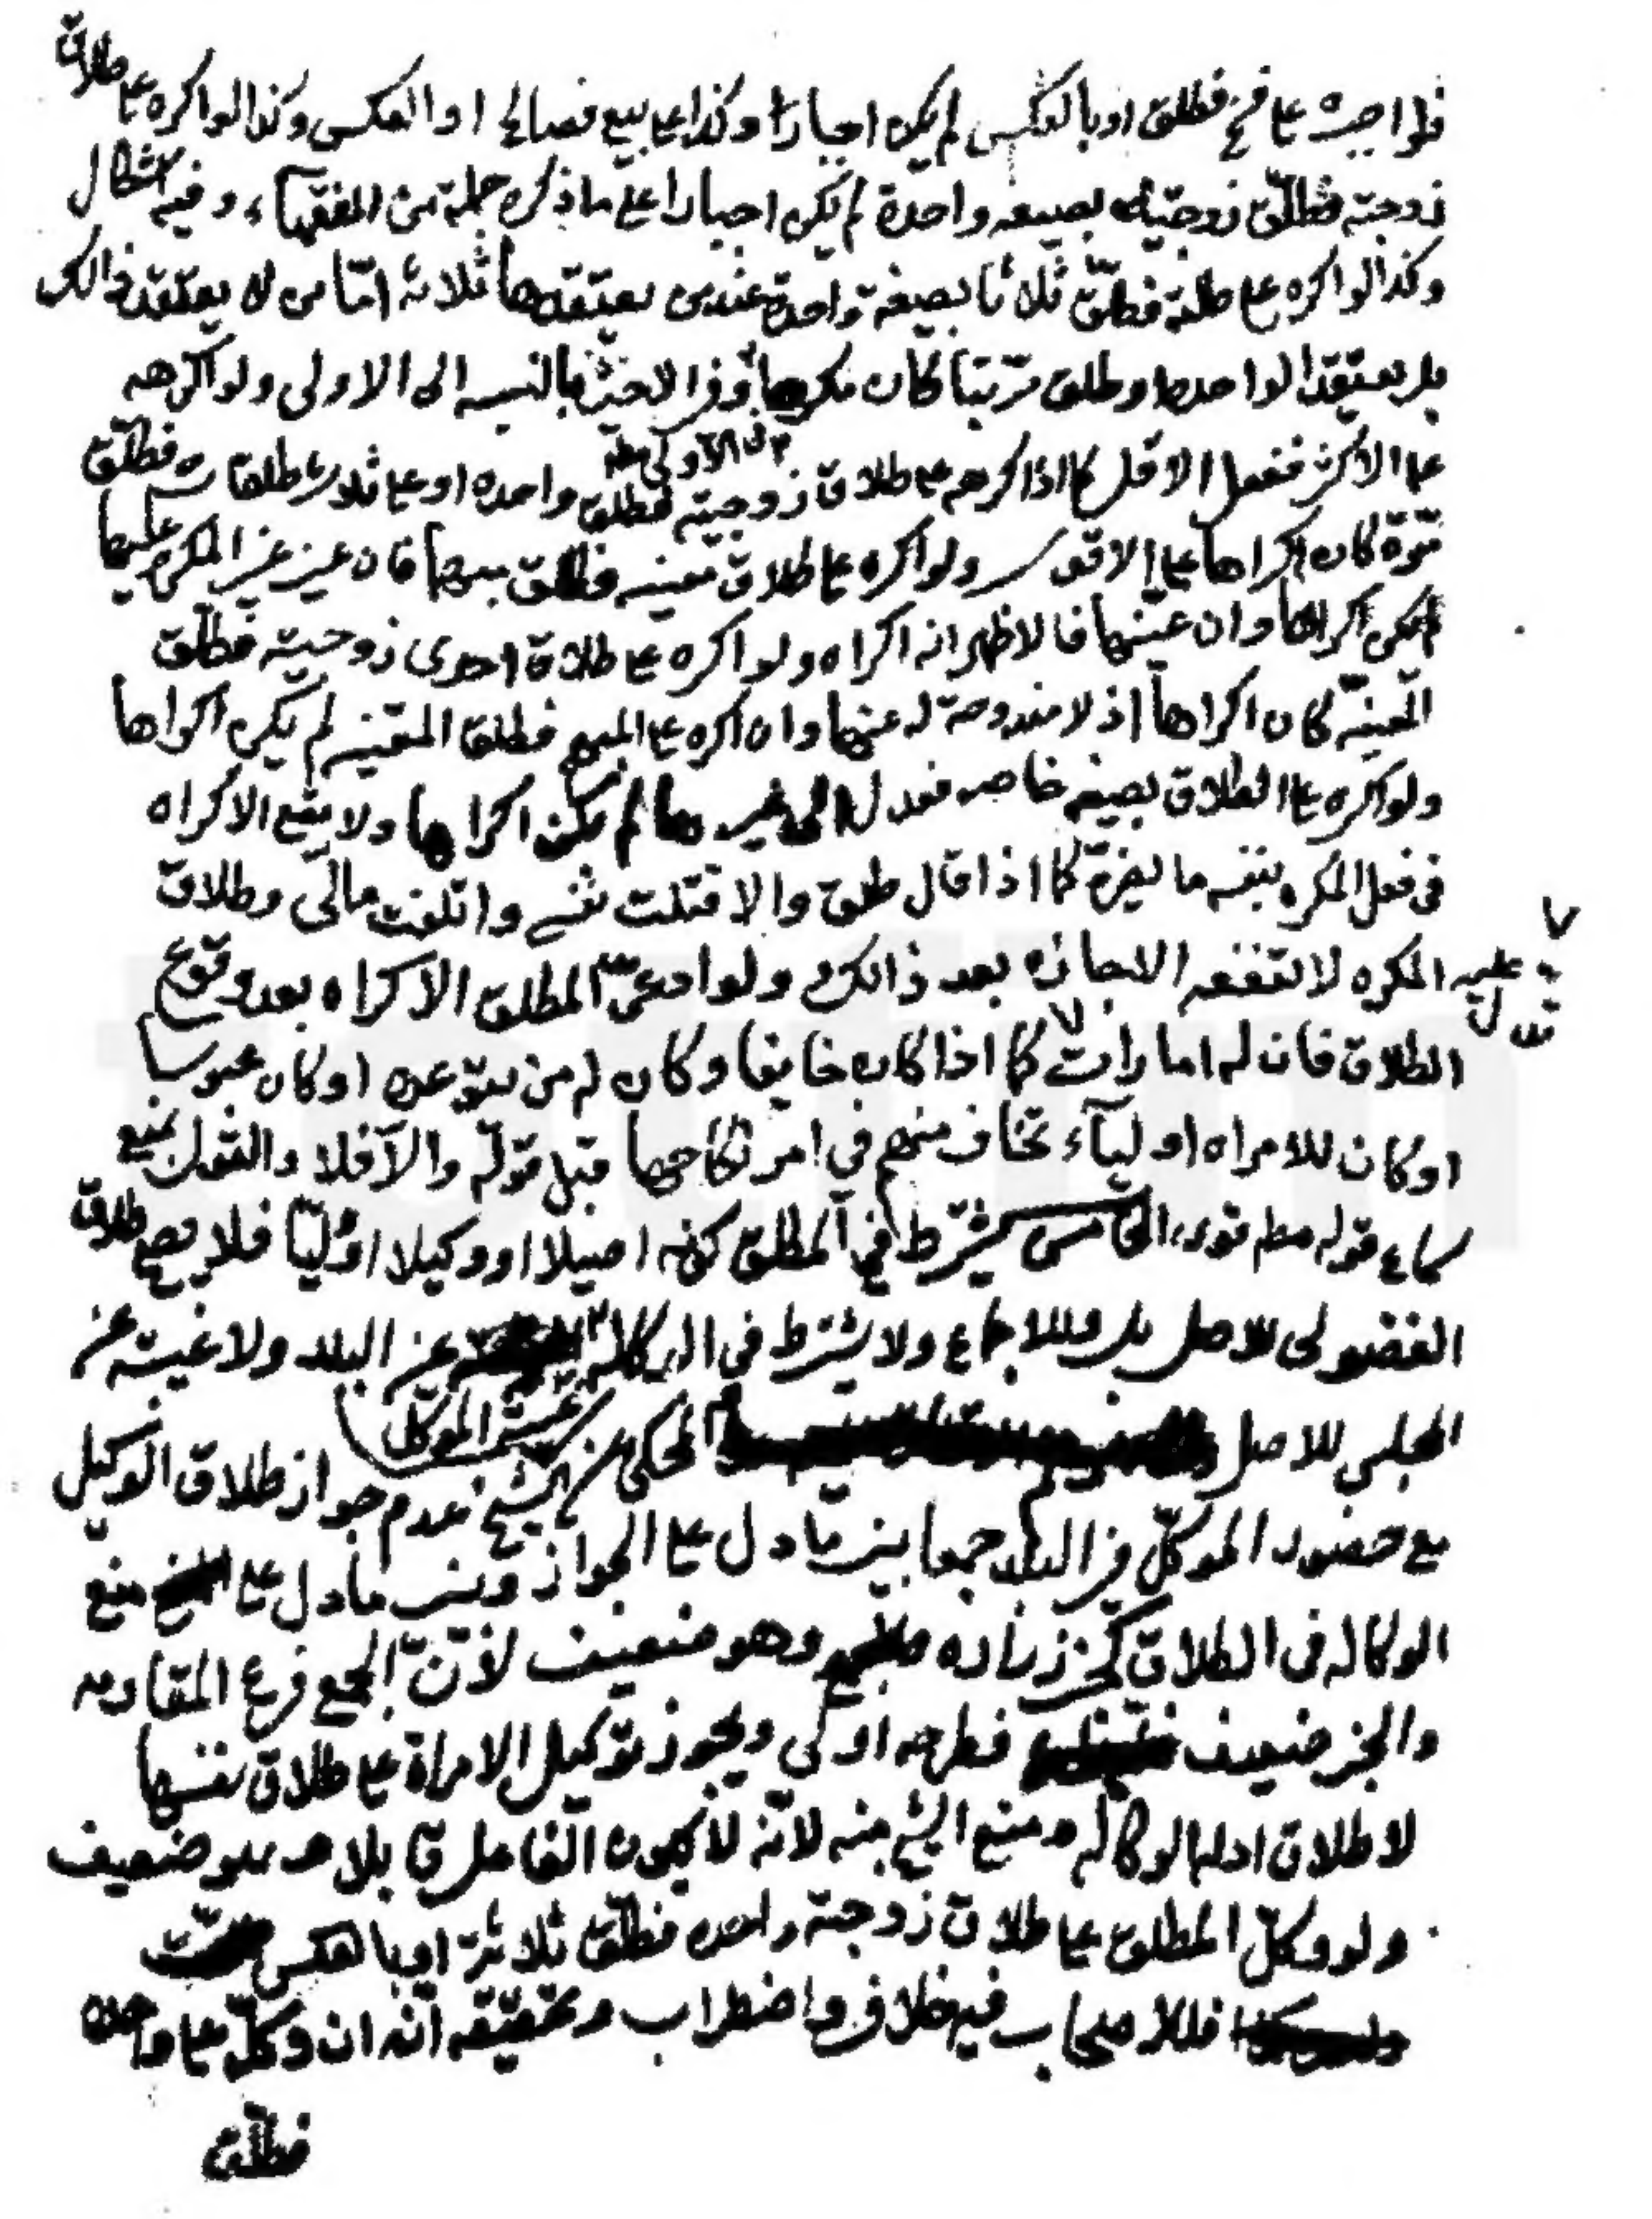 فلو اجبره على فسخ فطلق او بالعكس لم يكن اجبارا وكذا على بيع فصالح او العكس وكذا لو اكره على طلاق
زوجته فطلق زوجتيه بصيغه واحدة لم يكن اجبارا على ما ذكره جملة من الفقهآء وفيه اشكال
وكذا لو اكره على طلقة فطلق ثلاثا بصيغة واحدة عند من يعتقدها ثلاثه امّا من لا يعتقد ذالك
بل يعتقد الواحده او طلق مرّتبا كان مكرها بالنسبه الى الاولى ولو اكرهه
على الاكثر ففعل الاقل كما اذا اكرهه على طلاق زوجتيه فطلق واحده او على ثلاث طلقات فطلّق
مرّة كان اكراها على الاقوى ولو اكره على طلاق معينه فطلق مبهما فان عين غير المكره عليها
لم يكن اكراها وان عيّنها فالاظهر انه اكراه ولو اكره على طلاق احدى زوجتيه فطلّق
المعينّه كان اكراهاً اذ لا مندوحة له عنها وان اكره على المبهم فطلق المعين لم يكن اكراها
ولو اكره على الطلاق بصيغه خاصه فعدل الى غيرها لم يكن اكراها ولا يقع الاكراه
فى فعل المكره بنفسه ما يضرّه كما اذا قال طلق والا قتلت نفسي واتلفت مالى وطلاق
المكره لا تنفعه الاجازه بعد ذالك ولو ادعى المطلق الاكراه بعد وقوع
تدل عليه
الطلاق فان له امارات كما اذا كان خايفا وكان له من يتوعده او كان محبوسا
او كان للامراه اوليآء تخاف منهم في امر نكاحها قبل قوله والاّ فلا والقول بمنع
سماع قوله مطم قوى الخامس يشترط في المطلق كونه اصيلا او وكيلا او وليّا فلا يصح طلاق
الفضولى للاصل بل وللاجماع ولا يشترط في الوكاله غيبة الموكل عن البلد ولا غيبته عن
المجلس للاصل المحكي عن الشيخ عدم جواز طلاق الوكيل
مع حضور الموكّل في البلد جمعا بين ما دل على الجواز وبين ما دل على منع
الوكاله فى الطلاق كخبر زراره وهو ضعيف لانّ الجمع فرع المقاومه
والخبر ضعيف فطرحه اولى ويجوز توكيل الامراة على طلاق نفسها
لاطلاق ادله الوكاله ومنع الشيخ منه لانّه لا يكون الفاعل قابلا ضعيف
ولو وكلّ المطلق على طلاق زوجته واحده فطلّق ثلاثة او بالعكس
فللاصحاب فيه خلاف واضطراب وتحقيقه انّه ان وكلّ على واحده
فطلق